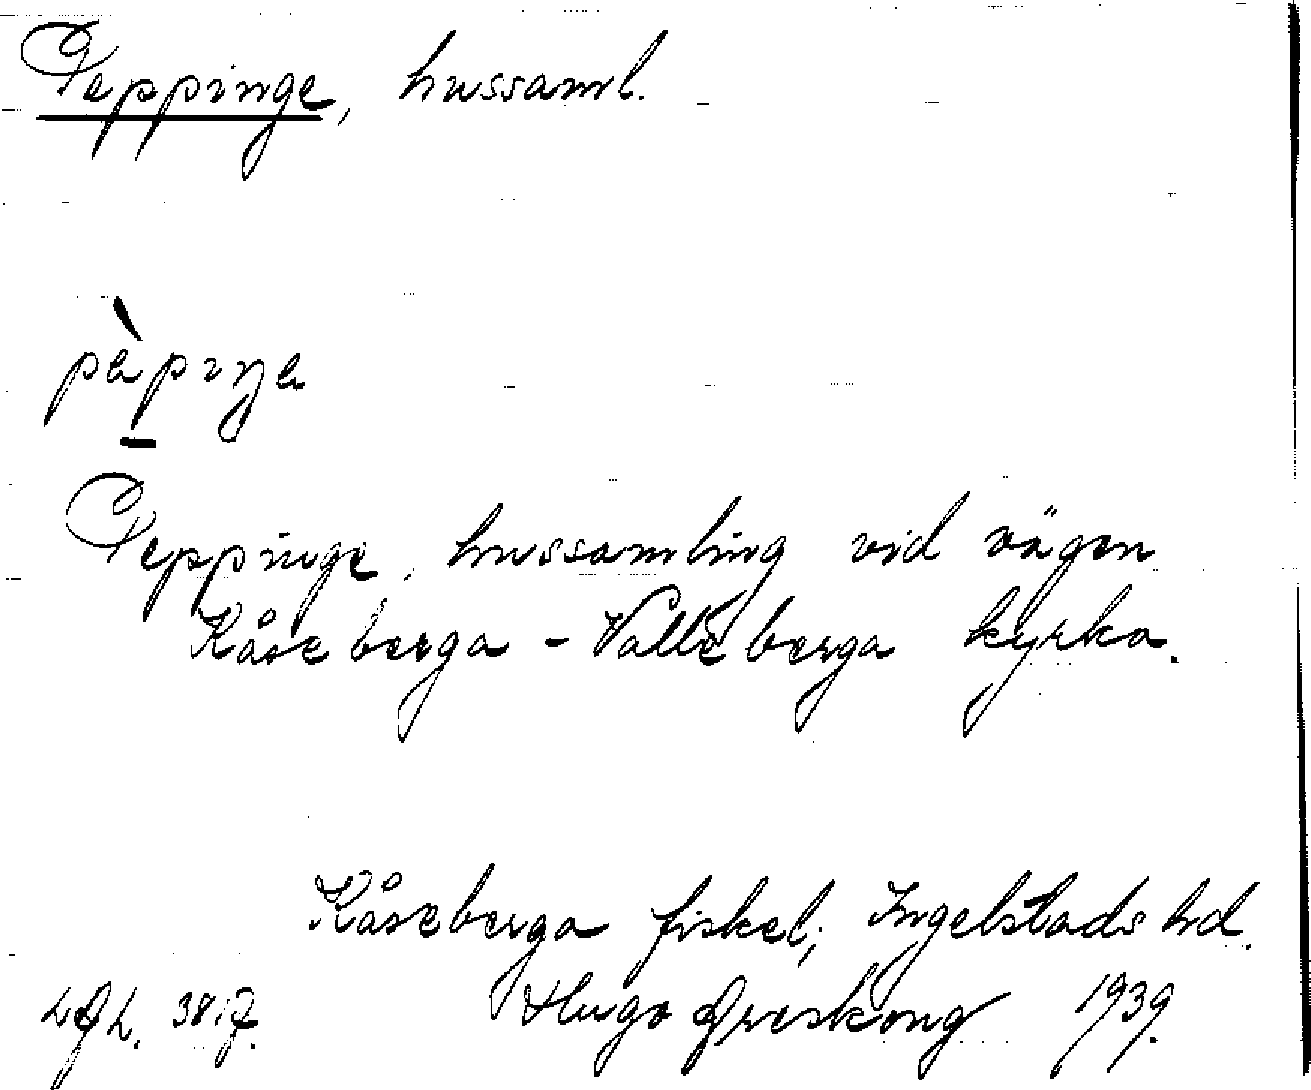 Peppinge, hussaml.
pàpiŋa
Peppinge, hussamling vid vägen
Kåseberga - Valleberga kyrka.
Kåseberga fiskel; Ingelstads hd.
Hugo Areskoug 1939.